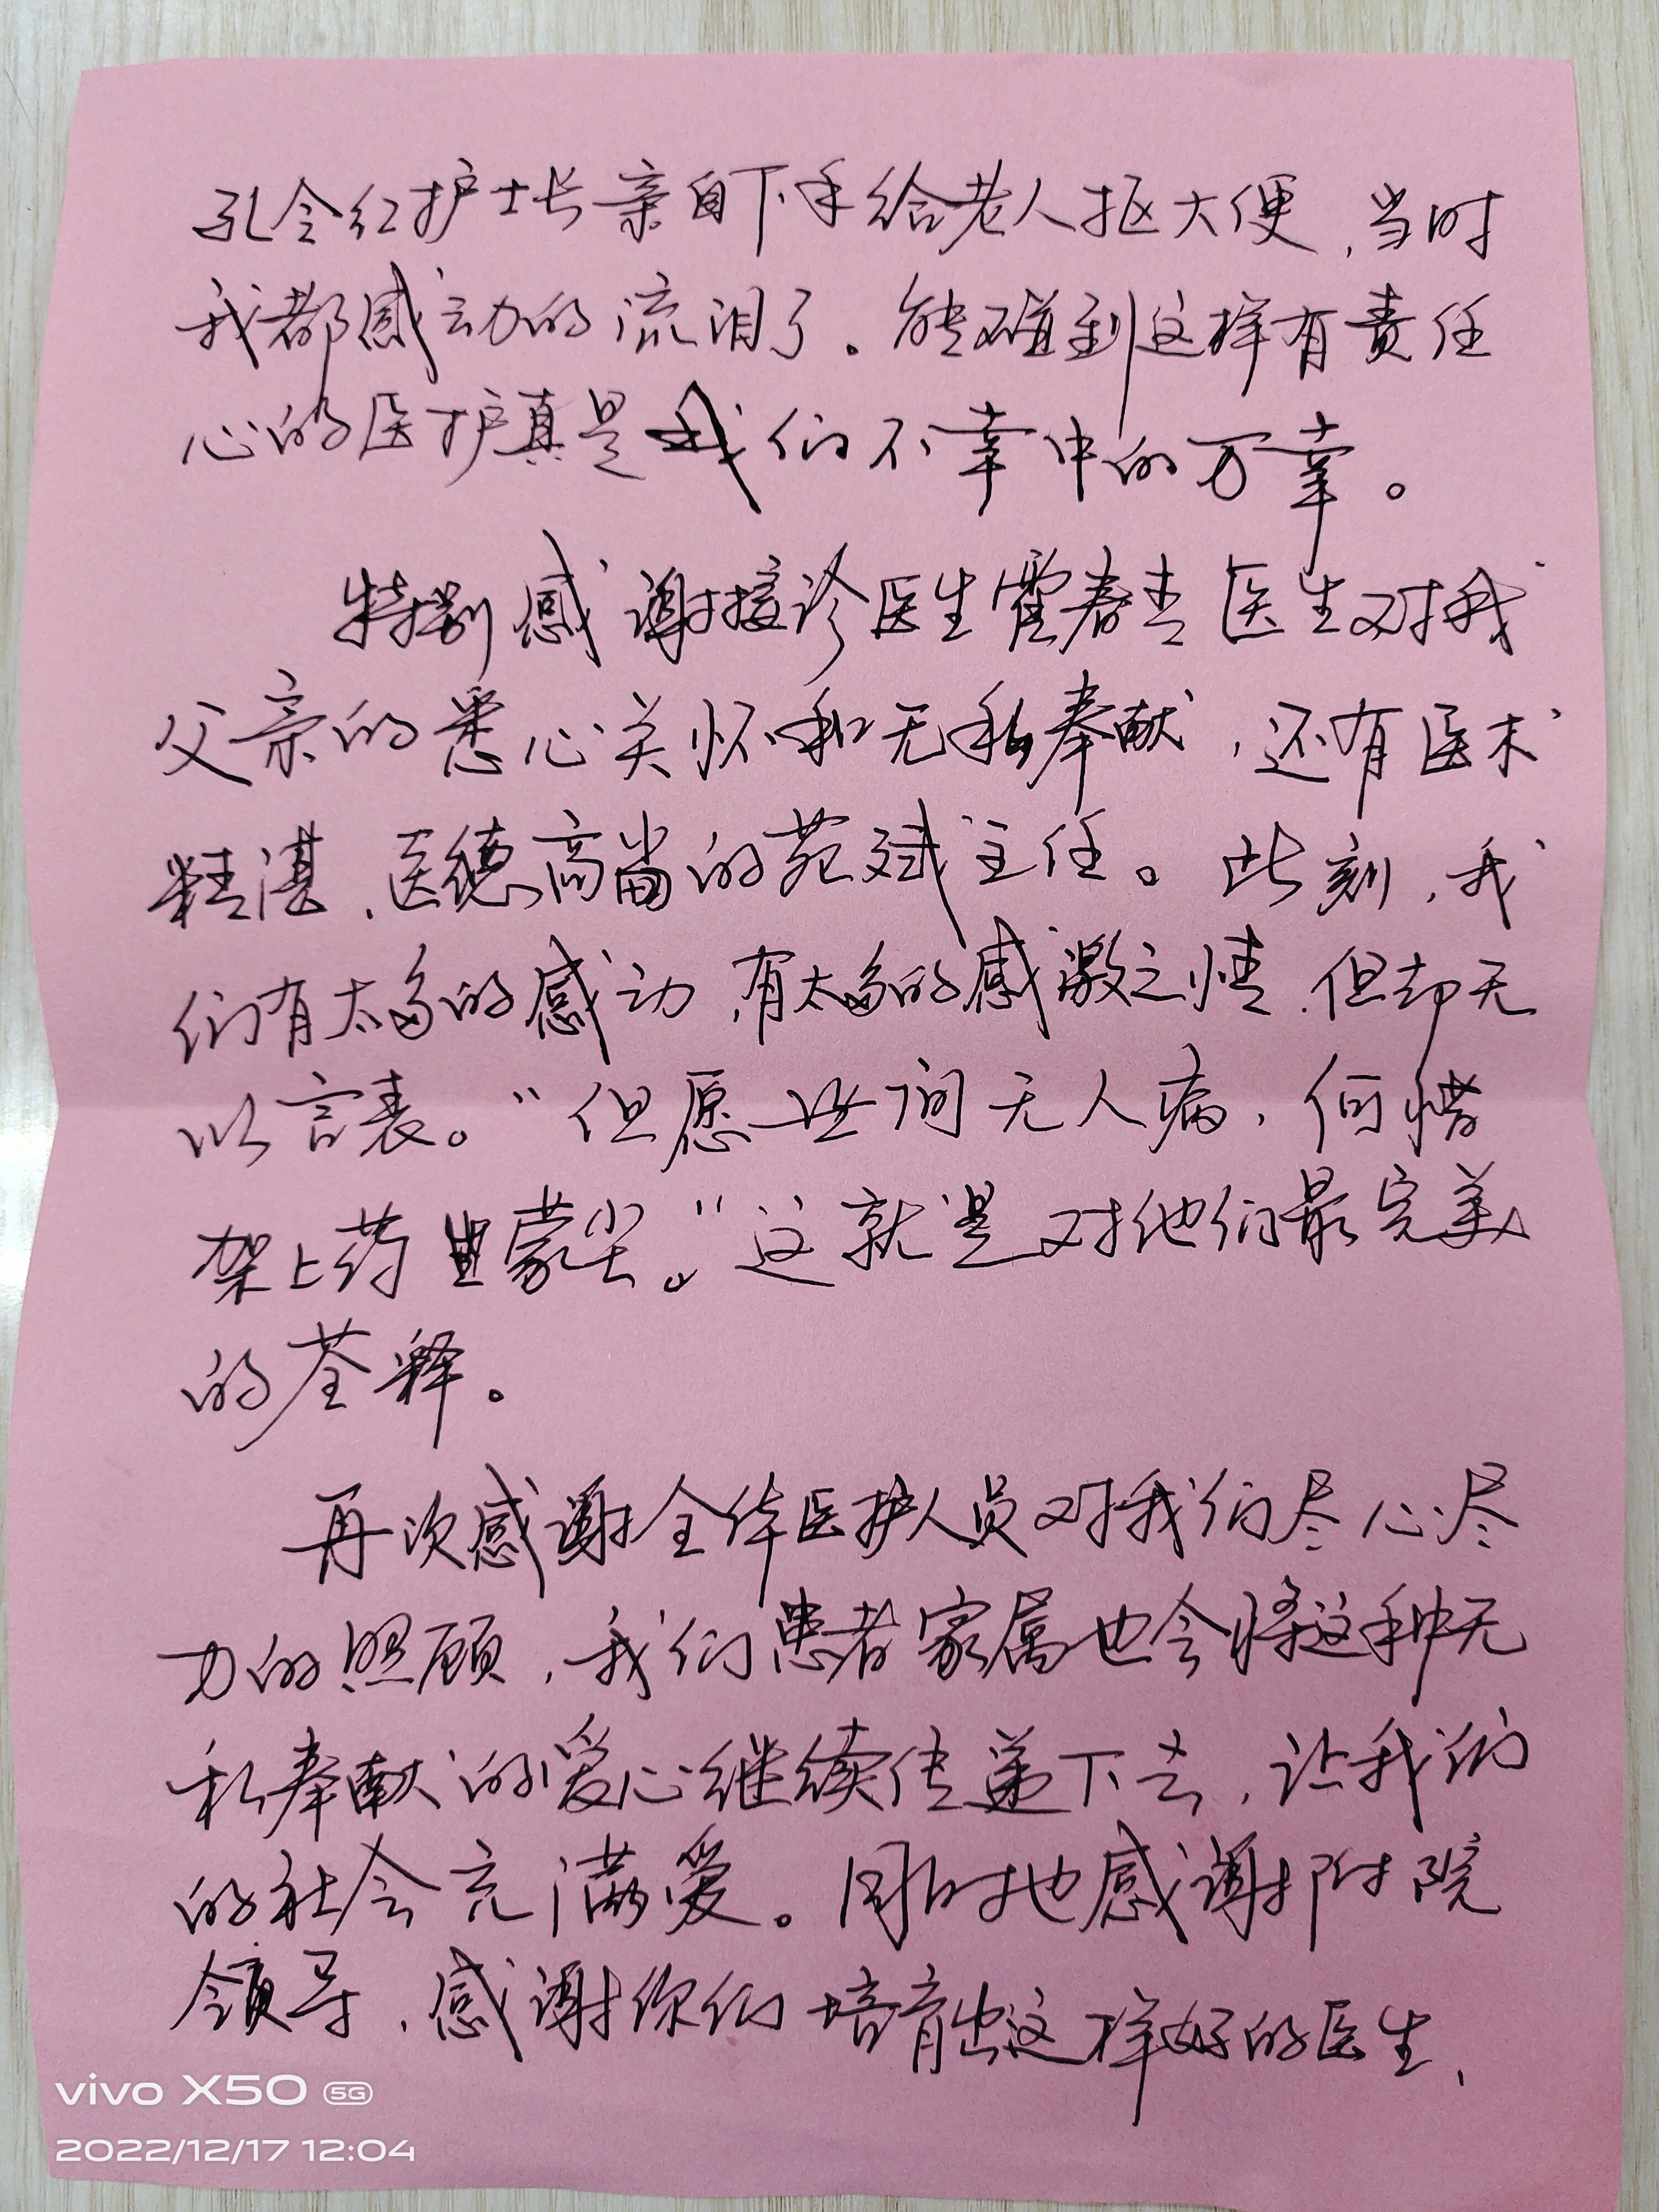 孔令红护士长亲自下手给老人抠大便,当时
我都感动的流泪了。能碰到这样有责任
心的医护真是我们不幸中的万幸。
特别感谢接诊医生霍春杏医生对我
父亲的悉心关怀和无私奉献,还有医术
精湛、医德高尚的苑斌主任。此刻,我
们有太多的感动,有太多的感激之情,但却无
以言表。“但愿世间无人病,何惜
架上药生尘。”这就是对他们最完美
的荃释。
再次感谢全体医护人员对我们尽心尽
力的照顾,我们患者家属也会将这种无
私奉献的爱心继续传递下去,让我们
的社会充满爱。同时也感谢附院
领导,感谢你们培育出这样好的医生、
vivo X50 5G
2022/12/17 12:04